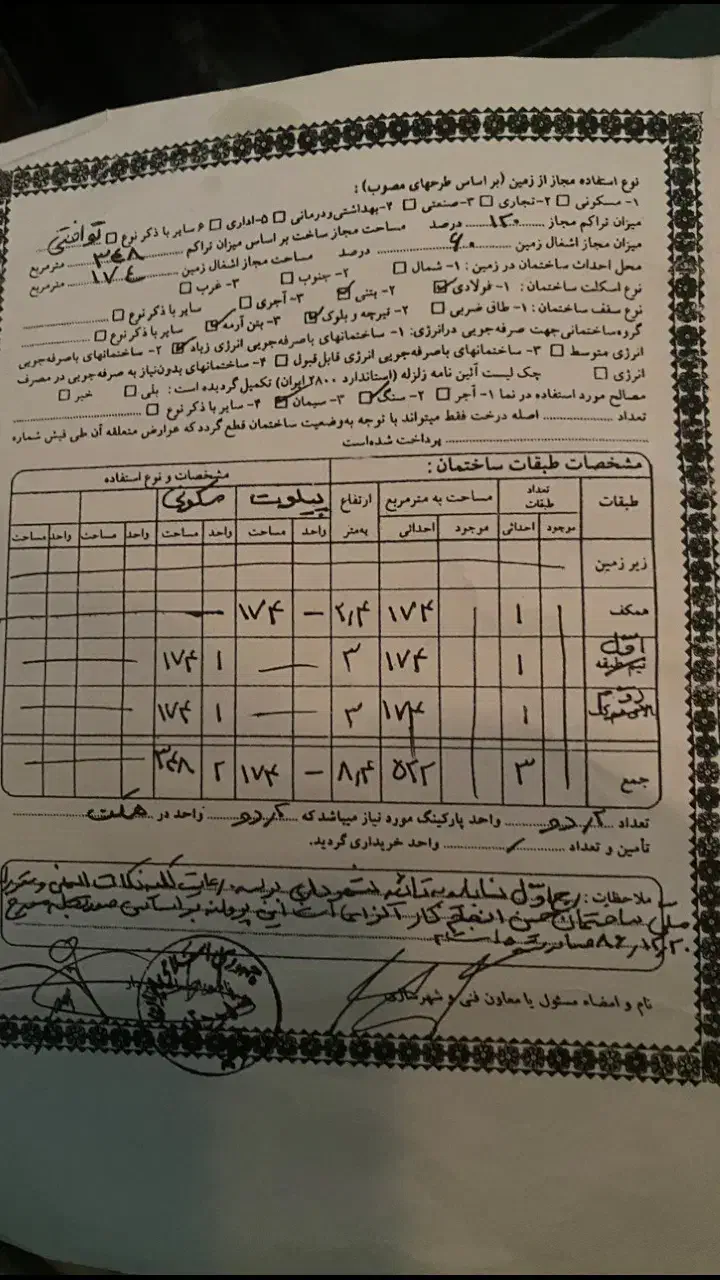 نوع استفاده مجاز از زمین (بر اساس طرحهای مصوب) :
۱- مسکونی ☐ ۲- تجاری ☐ ۳- صنعتی ☐ ۴- بهداشتی و درمانی ☐ ۵- اداری ☐ ۶ سایر با ذکر نوع ☐
میزان تراکم مجاز ۱۲۰ درصد مساحت مجاز ساخت بر اساس میزان تراکم ۳۴۸ مترمربع
میزان مجاز اشغال زمین ۶۰ درصد مساحت مجاز اشغال زمین ۱۷۴ مترمربع
محل احداث ساختمان در زمین : ۱- شمال ☐ ۲- جنوب ☐ ۳- غرب ☐
نوع اسکلت ساختمان : ۱- فولادی ☑ ۲- بتنی ☑ ۳- آجری ☐ سایر با ذکر نوع ☐
نوع سقف ساختمان : ۱- طاق ضربی ☐ ۲- تیرچه و بلوک ☑ ۳- بتن آرمه ☑ سایر با ذکر نوع ☐
گروه ساختمانی جهت صرفه جویی در انرژی: ۱- ساختمانهای باصرفه جویی انرژی زیاد ☑ ۲- ساختمانهای باصرفه جویی
انرژی متوسط ☐ ۳- ساختمانهای باصرفه جویی انرژی قابل قبول ☐ ۴- ساختمانهای بدون نیاز به صرفه جویی در مصرف
انرژی ☐ چک لیست آئین نامه زلزله (استاندارد ۲۸۰۰ ایران) تکمیل گردیده است : بلی ☐ خیر ☐
مصالح مورد استفاده در نما ۱- آجر ☐ ۲- سنگ ☑ ۳- سیمان ☑ ۴- سایر با ذکر نوع ☐
تعداد ........ اصله درخت فقط میتواند با توجه به وضعیت ساختمان قطع گردد که عوارض متعلقه آن طی فیش شماره
........ پرداخت شده است
مشخصات طبقات ساختمان : مشخصات و نوع استفاده
طبقات تعداد طبقات مساحت به مترمربع ارتفاع پیلوت مسکونی
موجود احداثی موجود احداثی به متر واحد مساحت واحد مساحت واحد مساحت واحد مساحت
زیر زمین
همکف ۱ ۱۷۴ ۲٫۴ — ۱۷۴
اول ۱ ۱۷۴ ۳ — ۱ ۱۷۴
دوم ۱ ۱۷۴ ۳ — ۱ ۱۷۴
جمع ۳ ۵۲۲ ۸٫۴ — ۱۷۴ ۲ ۳۴۸
تعداد ۲/دو واحد پارکینگ مورد نیاز میباشد که ۲/دو واحد در همکف
تأمین و تعداد ........ واحد خریداری گردید.
ملاحظات :
نام و امضاء مسئول یا معاون فنی و شهرسازی